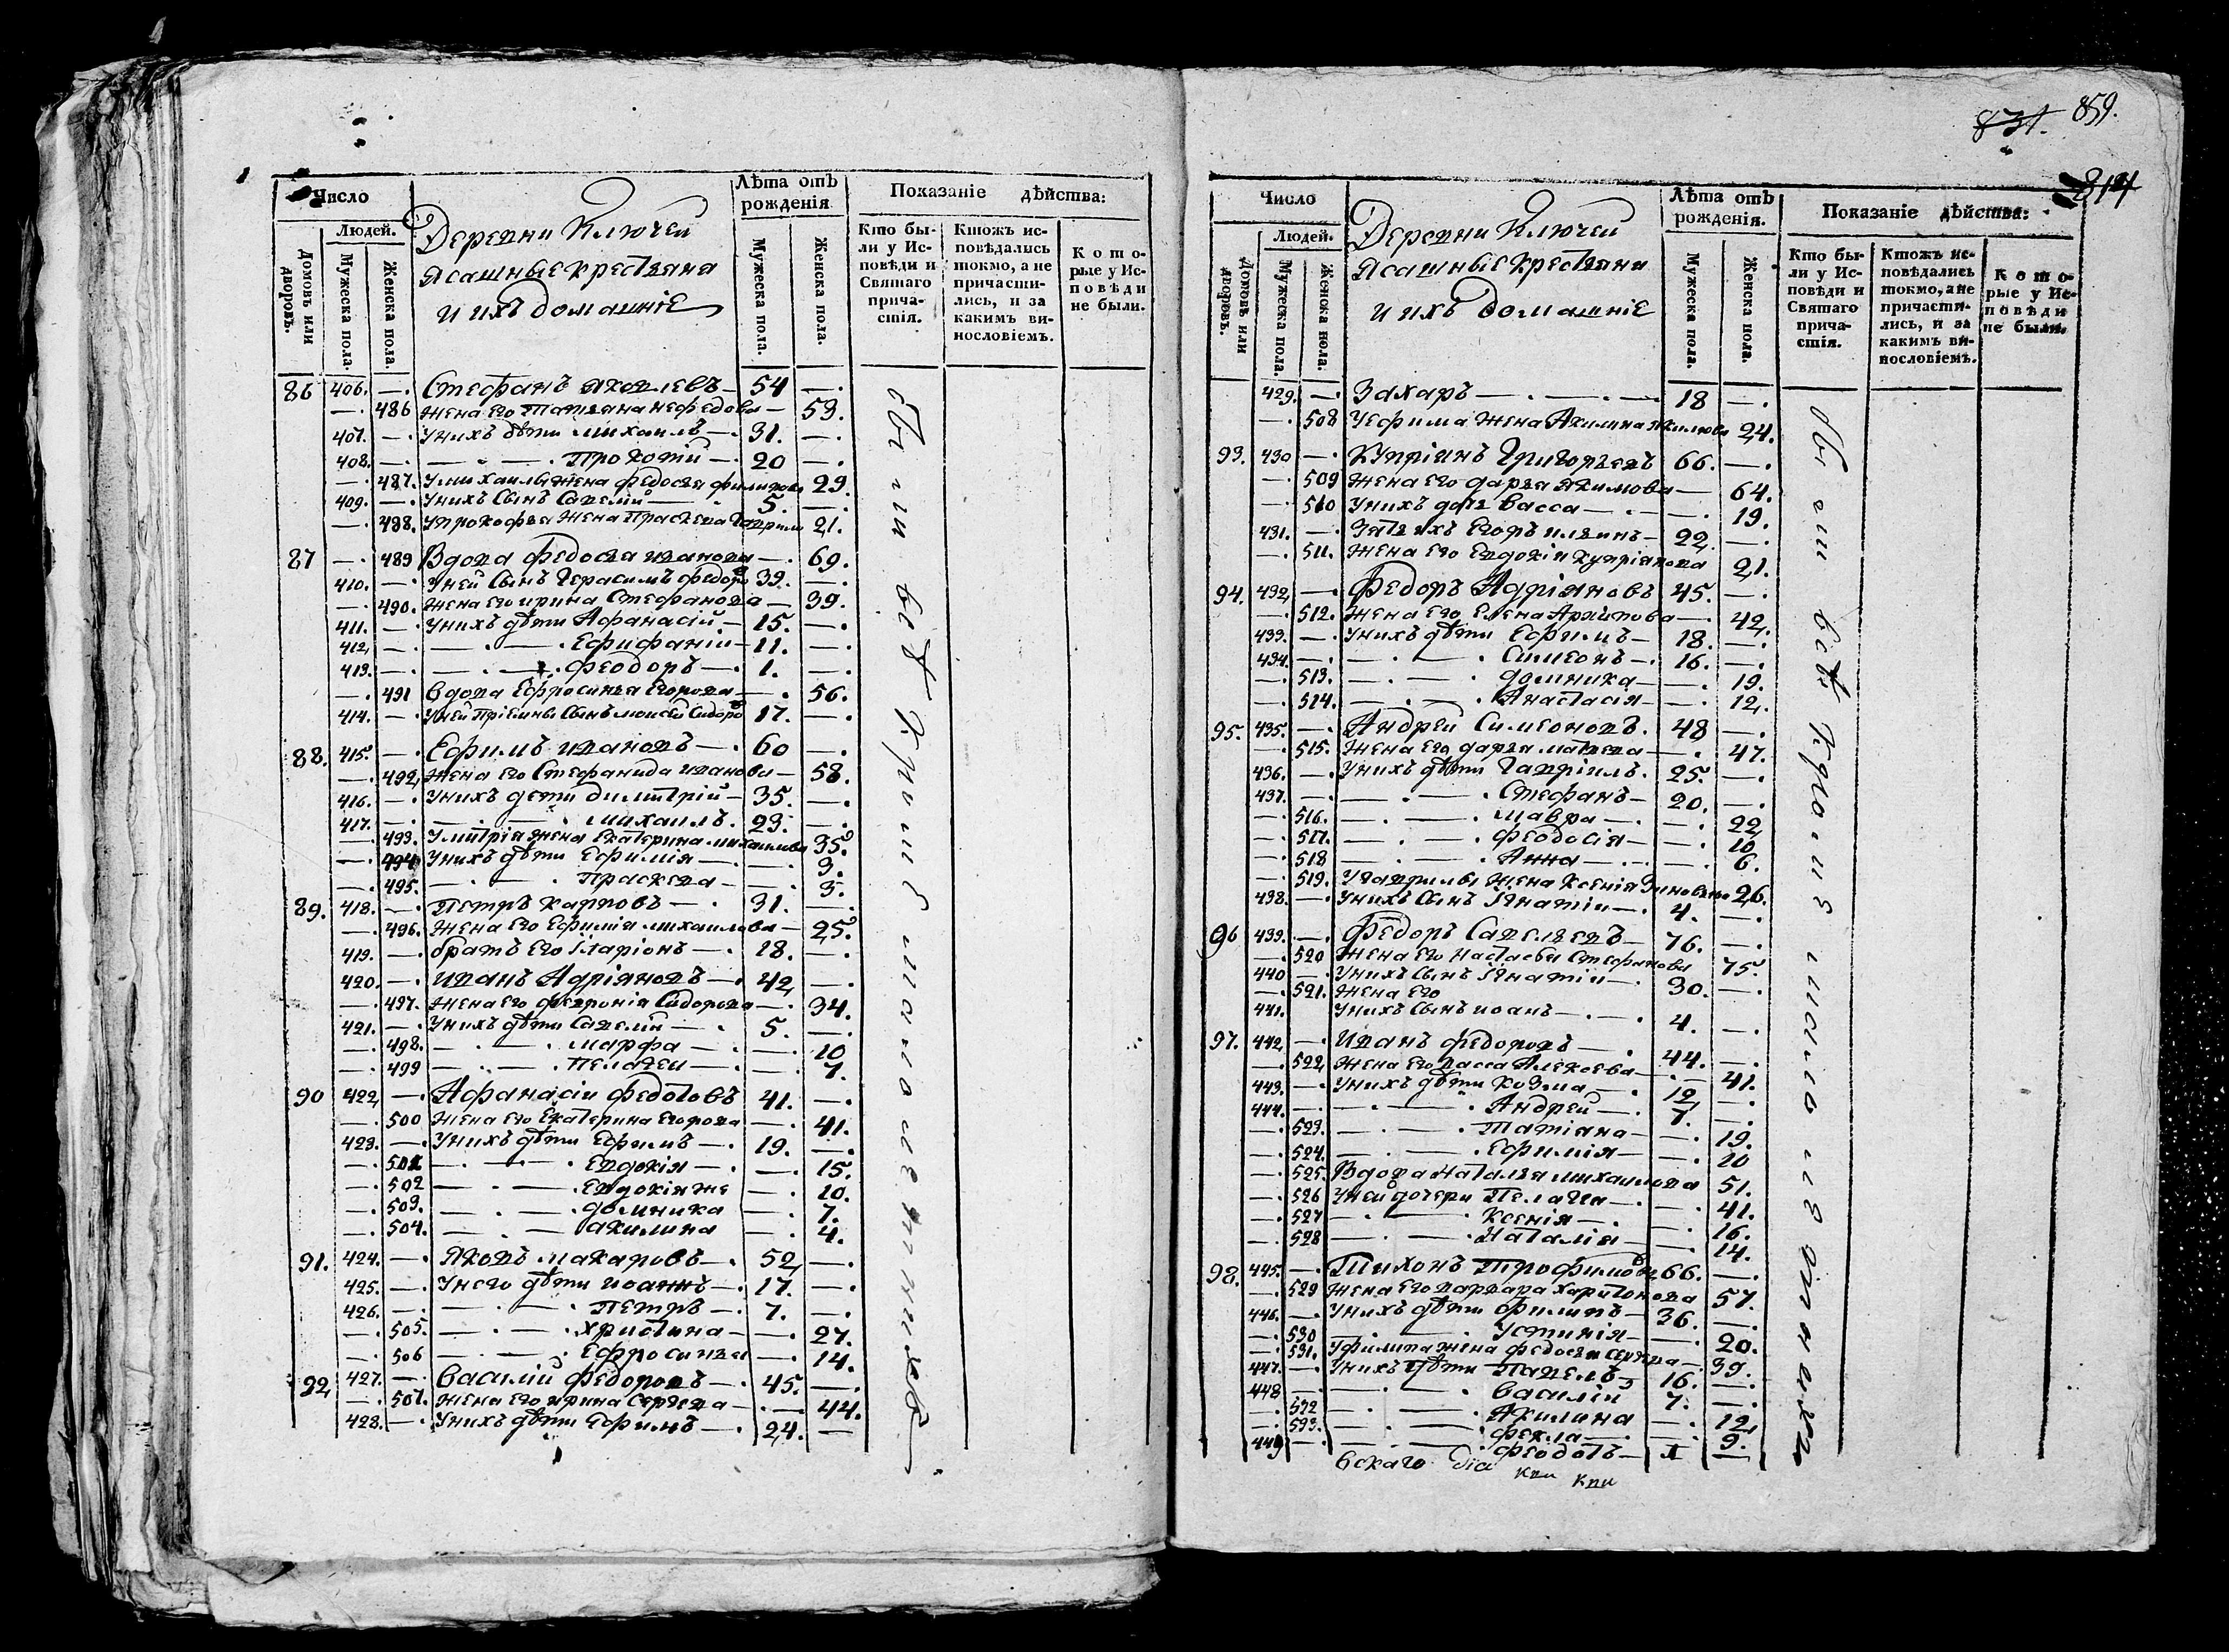 831. 859.
814
Число
Людей.
Домовъ или дворовъ.
Мужеска пола.
Женска пола.
Деревни Ключей
ясашные крестьяна
и ихъ домашніе
Лѣта отъ рожденія
Мужеска пола.
Женска пола.
Показаніе дѣйства:
Кто были у Исповѣди и Святаго причастія.
Ктожъ исповѣдались токмо, а не причастились, и за какимъ винословіемъ.
Которые у Исповѣди не были.
86 406. —. Стефанъ Яковлевъ — 54 —.
—. 486 жена его Татьяна Нефедова — 53.
407. —. У нихъ дѣти Михаилъ —. 31. —.
408. —. — . — . Прокопий —. 20 —.
—. 487. У михаилы жена Федосья Филипова 29.
409. —. У нихъ сынъ Савелий — 5. —.
—. 488. У прокофья жена Праскева Гаврилова 21.
87 —. 489 Вдова Федосья Иванова —. 69.
410. —. У ней сынъ Герасимъ Федоровъ 39. —.
—. 490. жена его Ирина Стефанова — 39.
411. —. У нихъ дѣти Афанасій — 15. —.
412. —. — . — . Епифаній — 11. —.
413. —. — . — . Феодоръ —. 1. —.
—. 491 вдова Ефросинья Егорова —. 56.
414. —. У ней приемный сынъ Моисей Сидоровъ 17. —.
88. 415. —. Ефимъ Ивановъ —. 60 —.
—. 492. жена его Стефанида Иванова — 58.
416. —. У нихъ дети Димитрій — 35. —.
417. —. — . — . Михаилъ. 23. —.
—. 493. У митрія жена Екатерина Михаилова 35.
—. 494. У нихъ дѣти Ефимія — —. 9.
—. 495. — . — . Праскева — —. 3.
89. 418. —. Петръ Карповъ —. 31. —.
—. 496. жена его Ефимія Михаилова — 25.
419. —. братъ его Иларіонъ —. 18. —.
420. —. Иванъ Адріяновъ —. 42. —.
—. 497. жена его Феврония Сидорова —. 34.
421. —. У нихъ дѣти Савелий —. 5. —.
—. 498. — . — . Марфа —. —. 10
—. 499 — . — . Пелагеи —. —. 7.
90 422. —. Афанасіи Федотовъ 41. —.
—. 500 жена его Екатерина Егорова —. 41.
423. —. У нихъ дѣти Ефимъ —. 19. —.
—. 501 — . — . Евдокія —. —. 15.
—. 502 — . — . Евдокія же —. 10.
—. 503. — . — . Домника —. 7.
—. 504. — . — Акилина —. 4.
91. 424. —. Яковъ Макаровъ —. 52. —.
425. —. У него дѣти Иоаннъ —. 17. —.
426. —. — . — . Петръ —. 7. —.
—. 505. — . — . Христина — —. 27.
—. 506 — . — . Ефросинья —. 14.
92 427. —. Василій Федоровъ —. 45. —.
—. 507. жена его Ирина Сергева —. 44.
428. —. У нихъ дѣти Ефимъ —. 24. —
Были всѣ
Число
Людей.
Домовъ или дворовъ.
Мужеска пола.
Женска пола.
Деревни Ключей
ясашные крестьяни
и ихъ домашніе
Лѣта отъ рожденія.
Мужеска пола.
Женска пола.
Показаніе дѣйства:
Кто были у Исповѣди и Святаго причастія.
Ктожъ исповѣдались токмо, а не причастились, и за какимъ винословіемъ.
Которые у Исповѣди не были.
429. —. Захаръ —. —. — 18 —.
—. 508 У ефима жена Акилина 24.
93. 430 —. Купріянъ Григорьевъ 66. —.
—. 509 жена его Дарья Якимова — 64.
—. 510 У нихъ дочь Васса —. —. 19.
431. —. Зять ихъ Егоръ Ильинъ — 22. —.
—. 511. жена его Евдокия Купріянова 21.
94. 432. —. Федоръ Адріяновъ 45. —.
—. 512. жена его Елена Архипова —. 42.
433. —. У нихъ дѣти Ефимъ — 18. —.
434. —. — . — . Симеонъ —. 16. —.
—. 513. — . — . Домника — —. 19.
—. 514. — . — . Анастасія — —. 12.
95. 435. —. Андрей Симеоновъ. 48 —.
—. 515. жена его Дарья Матвева —. 47.
436. —. У нихъ дѣти Гавріилъ. 25. —.
437. —. — . — . Стефанъ — 20. —.
—. 516. — . — . Мавра —. —. 22.
—. 517. — . — . Феодосія — —. 10
—. 518 — . — . Анна —. —. 6.
—. 519. У гаврилы жена Ксенія Зиновьева 26.
438. —. У нихъ сынъ Игнатіи —. 4. —.
96 439. —. Федоръ Савельевъ — 76. —.
—. 520 жена его Настасья Стефанова 75.
440 —. У нихъ сынъ Игнатіи —. 30. —.
—. 521. жена его
441. У нихъ сынъ Иоанъ —. —. 4. —.
97. 442. —. Иванъ Федоровъ —. 44. —.
—. 522. жена его Васса Алексева —. 41.
443. —. У нихъ дѣти Козма —. 12. —.
444. —. — . — . Андрей —. 7. —.
—. 523. — . — . Татіана — —. 19.
—. 524. — . — . Ефимія — —. 10
—. 525. Вдова Наталья Михаилова 51.
—. 526 У ней дочери Пелагия —. —. 41.
—. 527 — . — . Ксенія —. —. 16.
—. 528 — . — . Наталія — —. 14.
98. 445. —. Тихонъ Трофимовъ 66. —.
—. 529 жена его Варвара Харитонова 57.
446. —. У нихъ дѣти Филипъ — 36. —.
—. 530 — . — . Устинія — —. 20.
—. 531. У филипа жена Федосья —. 39.
447. —. У нихъ дѣти Павелъ — 16. —.
448 —. — . — . Василій 7. —.
—. 532 — . — . Акилина —. 12.
—. 533. — . — . Фекла —. —. 9.
449 —. — . — . Феодотъ — 1 —
Были всѣ
вскаго